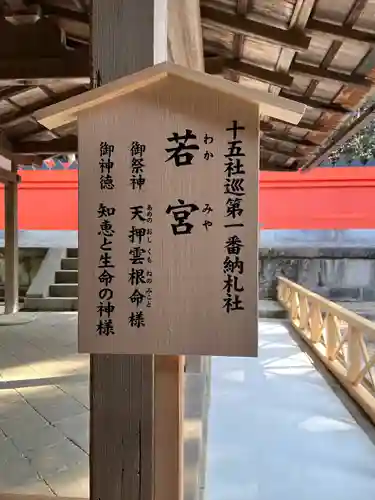 十五社巡第一番納札社
若宮
わか みや
御祭神 天押雲根命様
あめの おし くも ねの みこと
御神徳 知恵と生命の神様